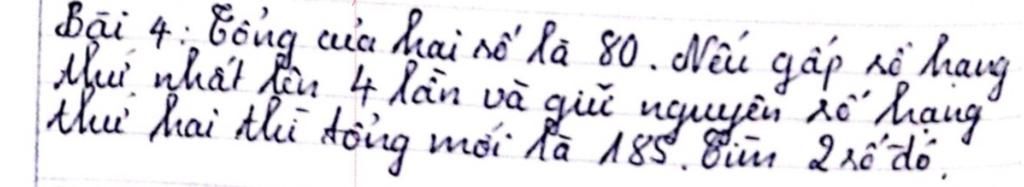 Bài 4: Tổng của hai số là 80. Nếu gấp số hạng
thứ nhất lên 4 lần và giữ nguyên số hạng
thứ hai thì tổng mới là 185. Tìm 2 số đó.